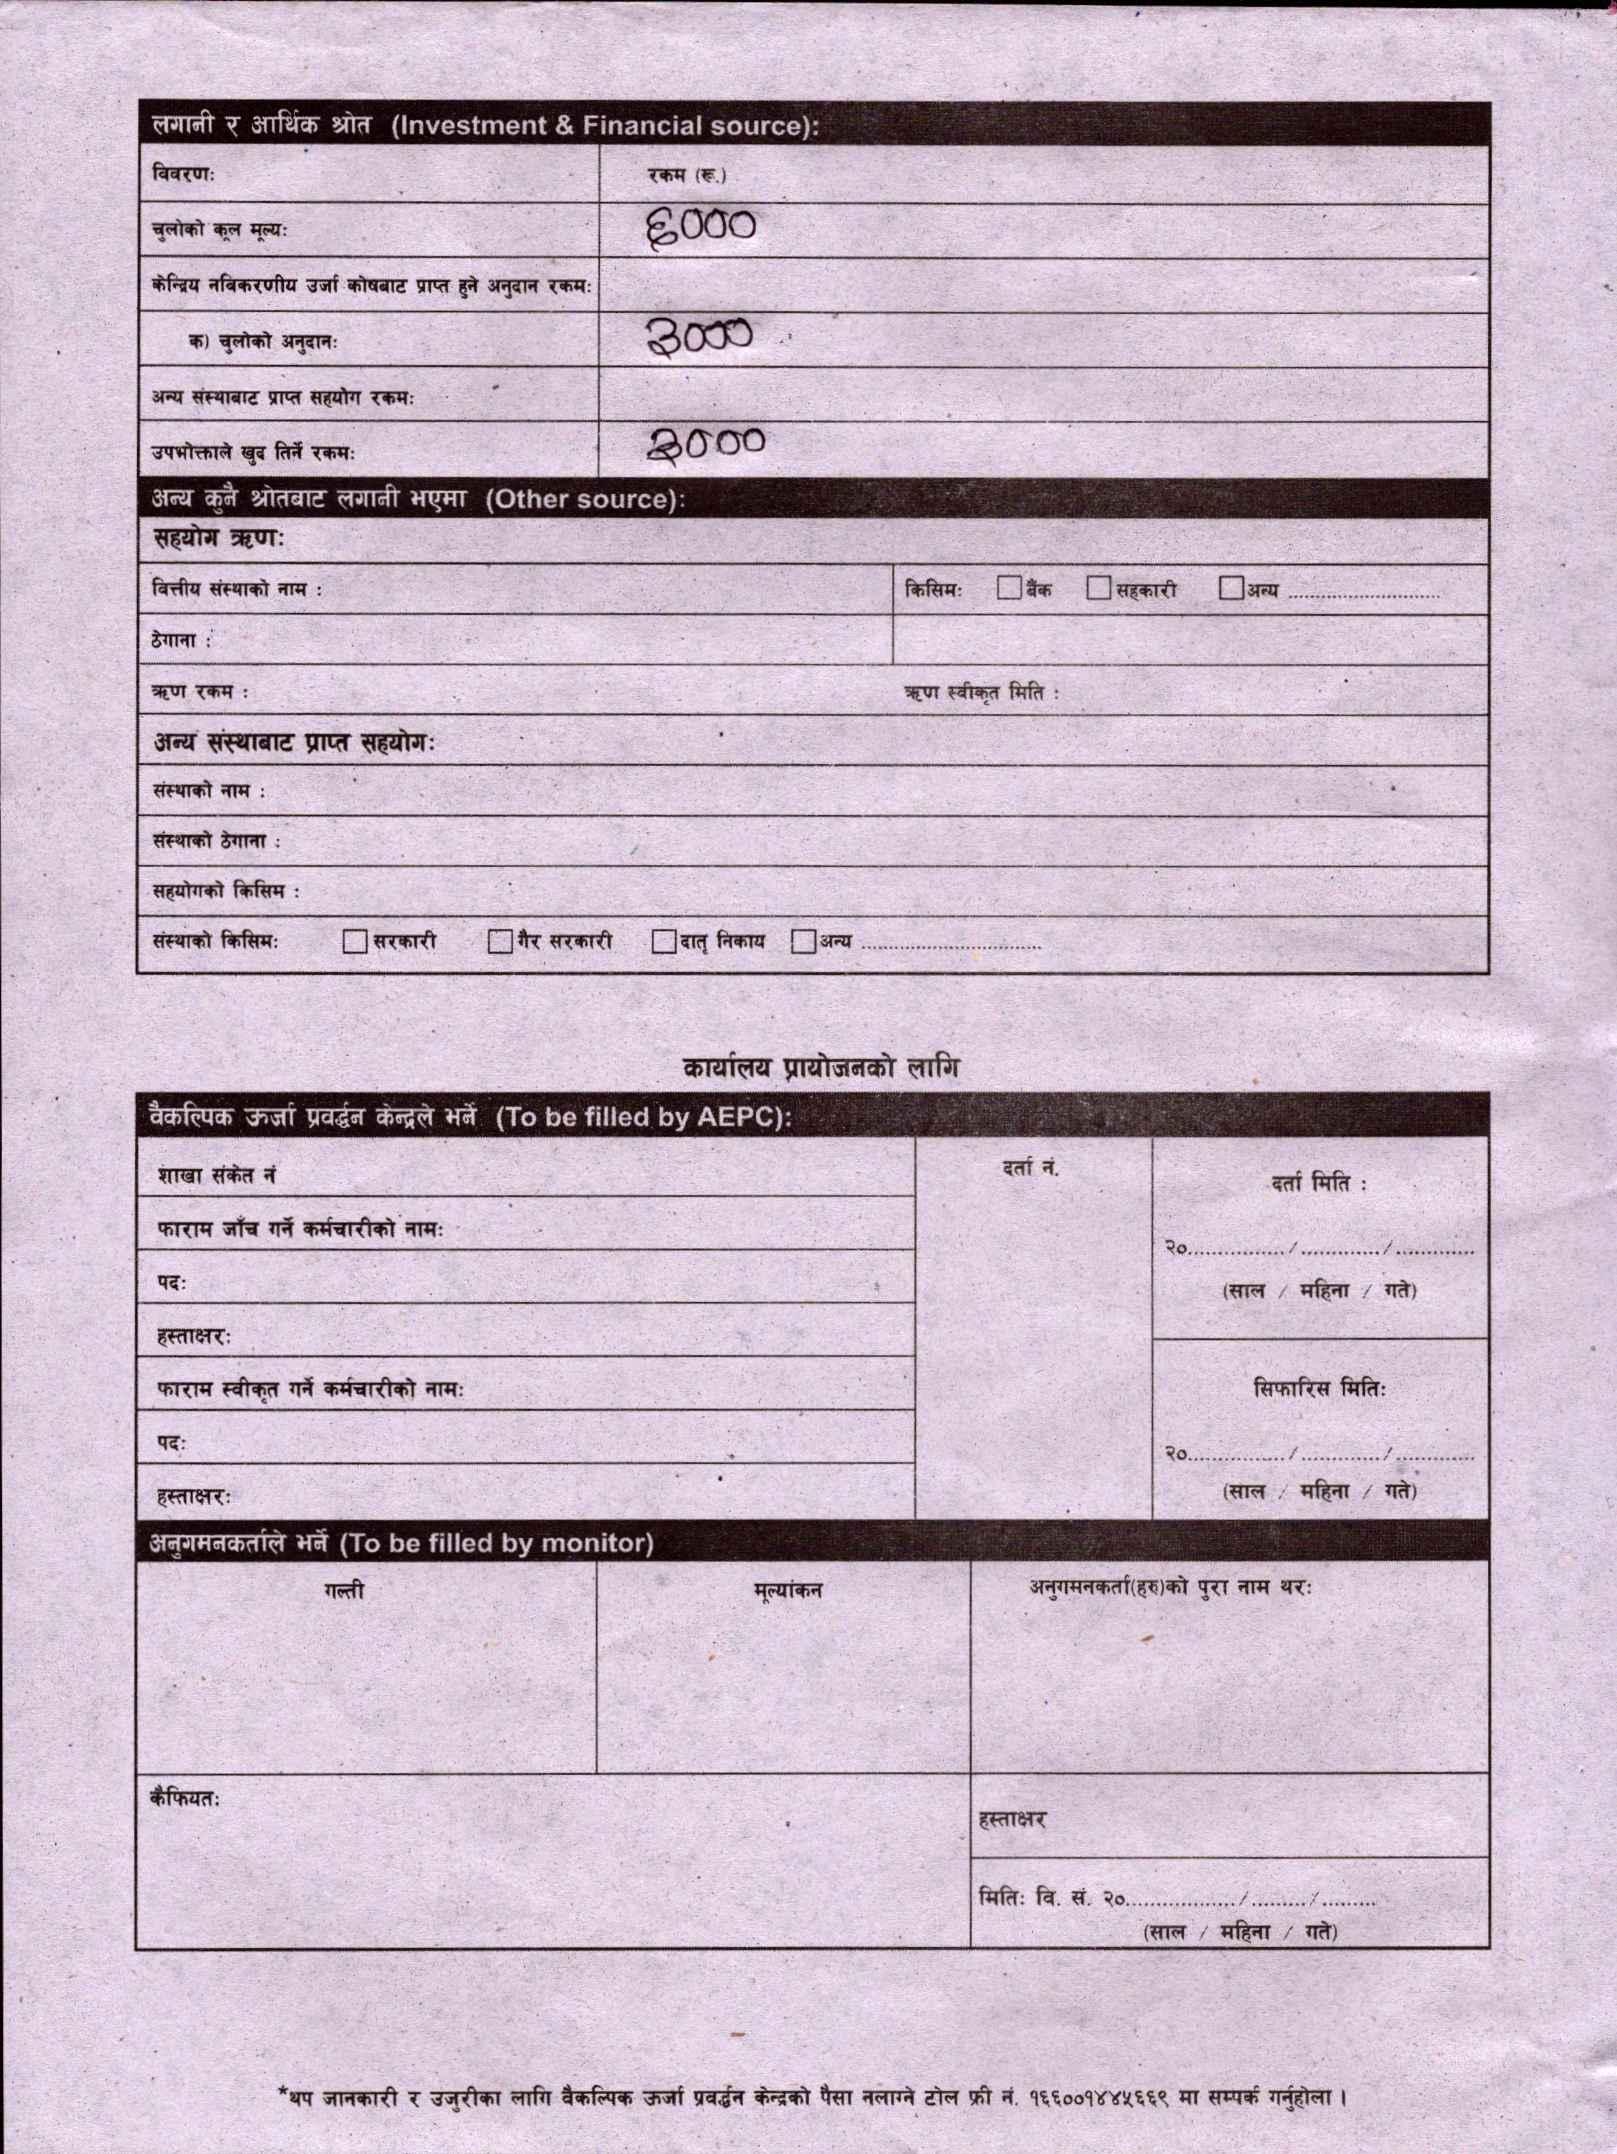 लगानी र आर्थिक श्रोत (Investment & Financial source):
विवरणः रकम (रू.)
चुलोको कूल मूल्यः ६०००
केन्द्रिय नविकरणीय उर्जा कोषबाट प्राप्त हुने अनुदान रकमः
क) चुलोको अनुदानः ३०००
अन्य संस्थाबाट प्राप्त सहयोग रकमः
उपभोक्ताले खुद तिर्ने रकमः ३०००
अन्य कुनै श्रोतबाट लगानी भएमा (Other source):
सहयोग ऋणः
वित्तीय संस्थाको नाम : किसिमः बैंक सहकारी अन्य ..........................
ठेगाना :
ऋण रकम : ऋण स्वीकृत मिति :
अन्य संस्थाबाट प्राप्त सहयोगः
संस्थाको नाम :
संस्थाको ठेगाना :
सहयोगको किसिम :
संस्थाको किसिमः सरकारी गैर सरकारी दातृ निकाय अन्य ...............................
कार्यालय प्रायोजनको लागि
वैकल्पिक ऊर्जा प्रवर्द्धन केन्द्रले भर्ने (To be filled by AEPC):
शाखा संकेत नं
फाराम जाँच गर्ने कर्मचारीको नामः
पदः
हस्ताक्षरः
फाराम स्वीकृत गर्ने कर्मचारीको नामः
पदः
हस्ताक्षरः
दर्ता नं.
दर्ता मिति :
२०................/............./.............
(साल / महिना / गते)
सिफारिस मितिः
२०................/............./.............
(साल / महिना / गते)
अनुगमनकर्ताले भर्ने (To be filled by monitor)
गल्ती मूल्यांकन अनुगमनकर्ता(हरु)को पुरा नाम थरः
कैफियतः
हस्ताक्षर
मितिः वि. सं. २०.................../........./.........
(साल / महिना / गते)
*थप जानकारी र उजुरीका लागि वैकल्पिक ऊर्जा प्रवर्द्धन केन्द्रको पैसा नलाग्ने टोल फ्री नं. १६६००१४४५६६९ मा सम्पर्क गर्नुहोला ।